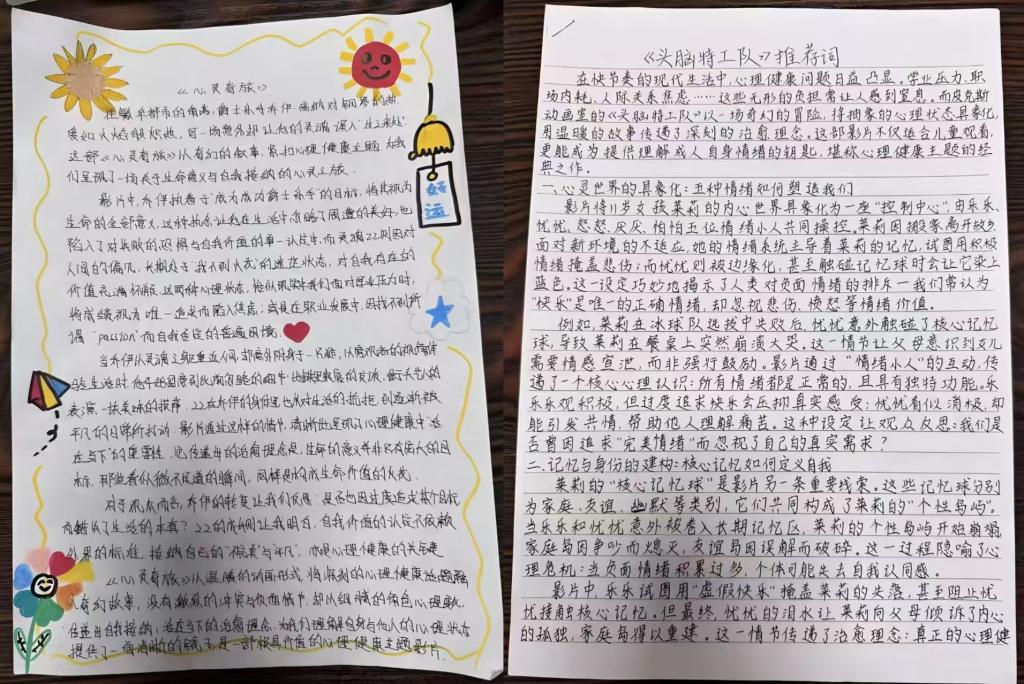 《心灵奇旅》
在繁华都市的角落,爵士乐手乔伊·高纳对钢琴的热
爱如火焰般炽热,可一场意外却让他的灵魂误入“生之来处”
这部《心灵奇旅》以奇幻的叙事,紧扣心理健康主题,为我
们呈现了一场关于生命意义与自我接纳的心灵之旅.
影片中,乔伊执着于“成为成功爵士乐手”的目标,将其视为
生命的全部意义,这种执念让他在生活中忽略了周遭的美好,也
陷入了对失败的恐惧与自我价值的单一认定中,而灵魂22则因对
人间的偏见,长期处于“找不到火花”的迷茫状态,对自我存在的
价值充满怀疑,这两种心理状态,恰似现实中我们面对学业压力时,
将成绩视为唯一追求而陷入焦虑;或是在职业发展中,因找不到所
谓“passion”而自我否定的普遍困境.
当乔伊从灵魂之躯重返人间,却意外附身于一只猫,以旁观者的视角体
验生活时,他开始留意到此前忽略的细节:
表演、一块美味的披萨.22在乔伊的身体里也从对生活的抗拒,到逐渐被
平凡的日常所打动.影片通过这样的情节,清晰地呈现了心理健康中“活
在当下”的重要性.它传递出的治愈理念是,生命的意义并非只有宏大的目
标,那些看似微不足道的瞬间,同样是构成生命价值的火花.
对于观众而言,乔伊的转变让我们反思:是否也因过度追求某个目标
而错过了生活的本真?22的成长则让我明白,自我价值的认定不依赖
外界的标准,接纳自己的“不完美”与平凡,亦是心理健康的关键
《心灵奇旅》以温暖的动画形式,将深刻的心理健康话题融
入奇幻故事,没有激烈的冲突与负面情节,却从细腻的角色心理状,
传递出自我接纳,活在当下的治愈理念,为我们理解自身与他人的心理状态
提供了一个清晰的镜子,是一部极具价值的心理健康主题影片.
好
运
《头脑特工队》推荐词
在快节奏的现代生活中,心理健康问题日益凸显。学业压力、职
场内耗、人际关系焦虑……这些无形的负担常让人感到窒息。而皮克斯
动画室的《头脑特工队》以一场奇幻的冒险,将抽象的心理状态具象化,
用温暖的故事传递了深刻的治愈理念。这部影片不仅适合儿童观看,
更能成为提供理解成人自身情绪的钥匙,堪称心理健康主题的经
典之作。
一、心灵世界的具象化:五种情绪如何塑造我们
影片将11岁女孩莱莉的内心世界具象化为一座“控制中心”,由乐乐、
忧忧、怒怒、厌厌、怕怕五位情绪小人共同操控。莱莉因搬家离开故乡
面对新环境的不适应,她的情绪系统主导着莱莉的记忆,试图用积极
情绪掩盖悲伤;而忧忧则被边缘化,甚至触碰记忆球时会让它染上
蓝色。这一设定巧妙地揭示了人类对负面情绪的排斥—我们常认为
“快乐”是唯一的正确情绪,却忽视悲伤、愤怒等情绪价值。
例如,莱莉在冰球队选拔中失败后,忧忧意外触碰了核心记忆
球,导致莱莉在餐桌上突然崩溃大哭。这一情节让父母意识到女儿
需要情感宣泄,而非强行鼓励。影片通过“情绪小人”的互动,传
递了一个核心心理认识:所有情绪都是正常的,且具有独特功能。乐
乐乐观积极,但过度追求快乐会压抑真实感受;忧忧看似消极,却
能引发共情,帮助他人理解痛苦。这种设定让观众反思:我们是
否曾因追求“完美情绪”而忽视了自己的真实需求?
二、记忆与身份的建构:核心记忆如何定义自我
莱莉的“核心记忆球”是影片另一条重要线索。这些记忆球分别
为家庭、友谊、幽默等类别,它们共同构成了莱莉的“个性岛屿”。
当乐乐和忧忧意外被卷入长期记忆区,莱莉的个性岛屿开始崩塌,
家庭岛因争吵而熄灭,友谊岛因误解而破碎。这一过程隐喻了心
理危机:当负面情绪积累过多,个体可能失去自我认同感。
影片中,乐乐试图用“虚假快乐”掩盖莱莉的失落,甚至阻止忧
忧接触核心记忆。但最终,忧忧的泪水让莱莉向父母倾诉了内心
的孤独,家庭岛得以重建。这一情节传递了治愈理念:真正的心理健